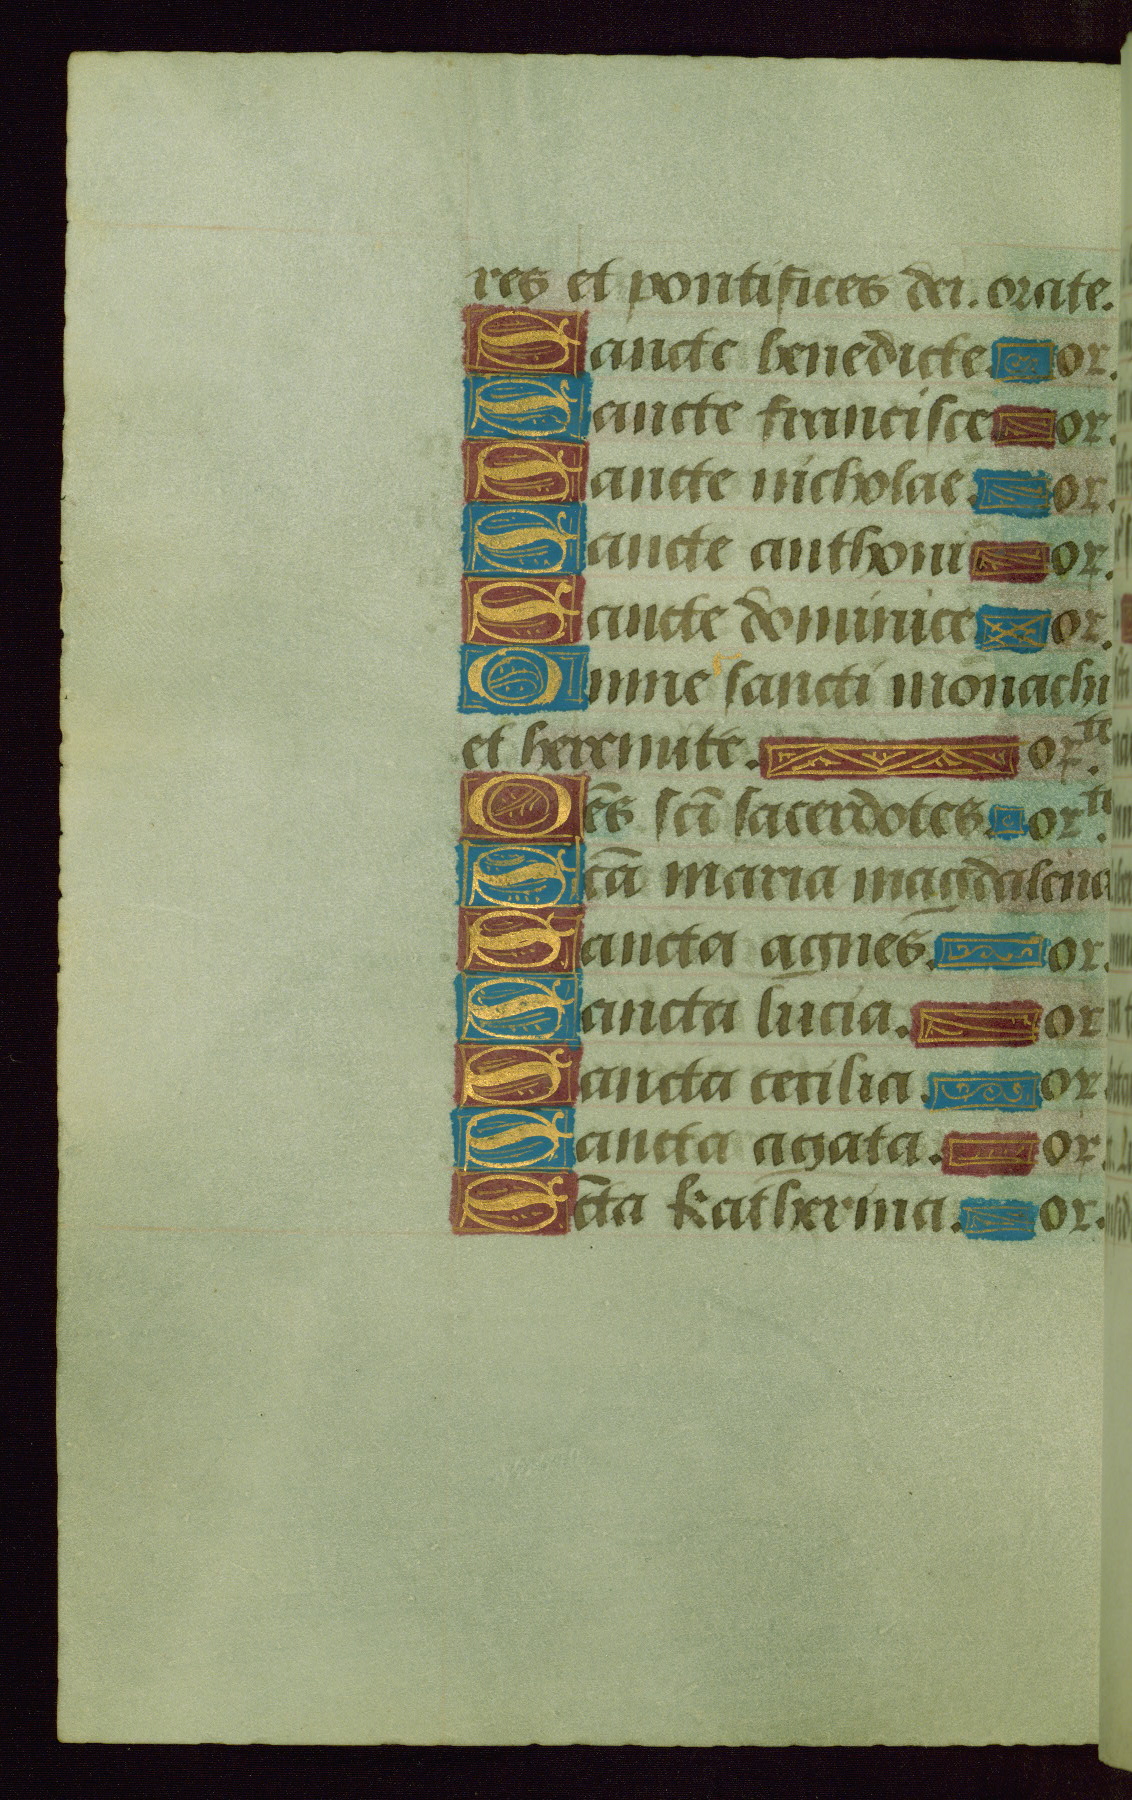 res et pontifices dei. orate.
Sancte benedicte or.
Sancte francisce or.
Sancte nicholae. or.
Sancte anthoni or.
Sancte dominice or.
Omne sancti monachi
et heremite. or.te
Oēs scī sacerdotes. or.ti
Scā maria magdalena
Sancta agnes. or.
Sancta lucia. or
Sancta cecilia. or.
Sancta agata. or.
Sc̄ta katherina. or.